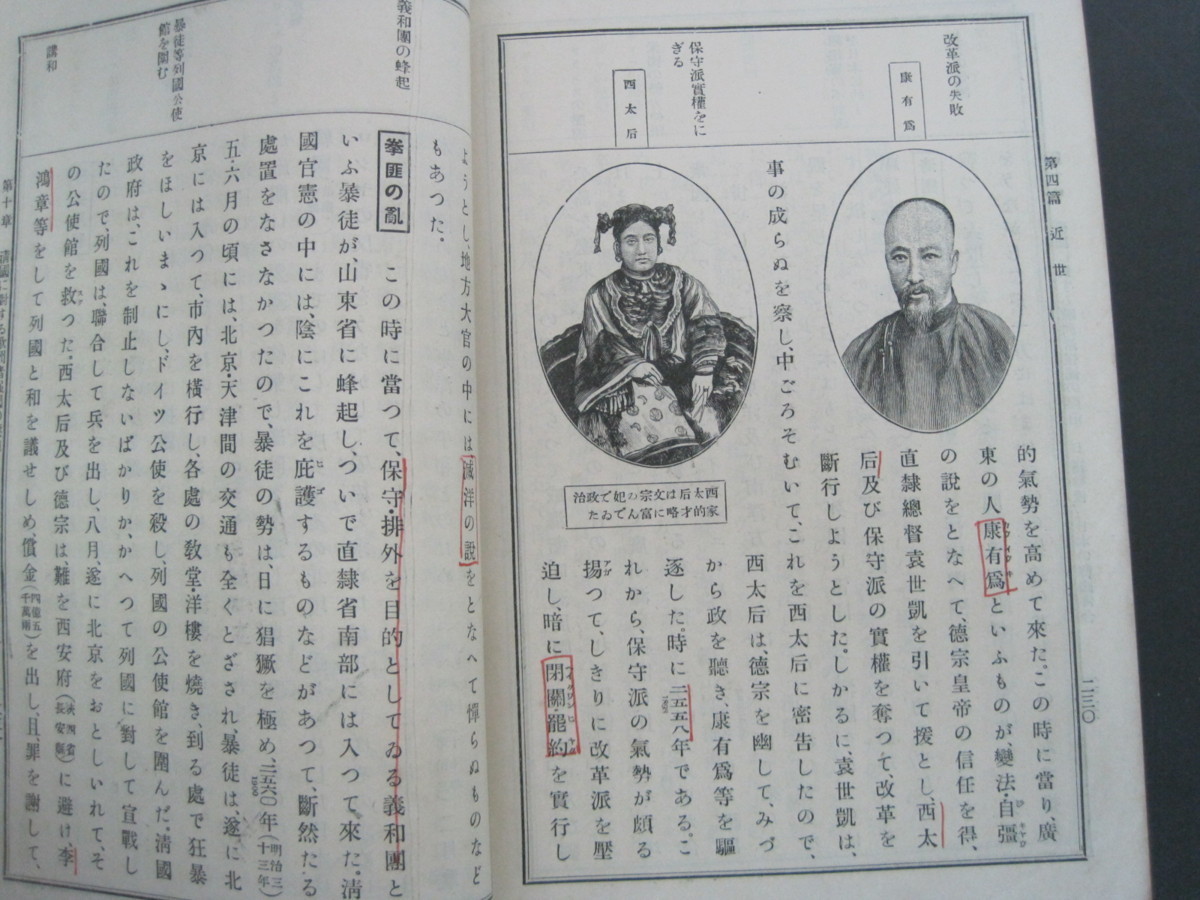 第四篇 近世
二三〇
改革派の失敗
康有爲
保守派實權をに
ぎる
西太后
的氣勢を高めて來た。この時に當り、廣
東の人康有爲といふものが、變法・自彊
の說をとなへて、德宗皇帝の信任を得、
直隷總督袁世凱を引いて援とし、西太
后及び保守派の實權を奪つて、改革を
斷行しようとした。しかるに、袁世凱は、
事の成らぬを察し、中ごろそむいて、これを西太后に密吿したので、
西太后は、德宗を幽して、みづ
から政を聽き、康有爲等を驅
逐した。時に二五五八年である。こ
れから、保守派の氣勢が頗る
揚つて、しきりに改革派を壓
迫し、暗に閉關・罷約を實行し
西太后は文宗の妃で政治
家的才略に富んでゐた
義和團の蜂起
暴徒等列國公使
館を圍む
講和
ようとし、地方大官の中には滅洋の說をとなへて憚らぬものなど
もあつた。
拳匪の亂 この時に當つて、保守・排外を目的としてゐる義和團と
いふ暴徒が、山東省に蜂起し、ついで直隷省南部には入つて來た。淸
國官憲の中には、陰にこれを庇護するものなどがあつて、斷然たる
處置をなさなかつたので、暴徒の勢は、日に猖獗を極め、二五六〇年(明治三十三年)
五・六月の頃には、北京・天津間の交通も全くとざされ、暴徒は、遂に北
京には入つて、市內を橫行し、各處の敎堂・洋樓を燒き、到る處で狂暴
をほしいまゝにし、ドイツ公使を殺し、列國の公使館を圍んだ。淸國
政府は、これを制止しないばかりか、かへつて列國に對して宣戰し
たので、列國は、聯合して兵を出し、八月、遂に北京をおとしいれて、そ
の公使館を救つた。西太后及び德宗は、難を西安府(陝西省長安縣)に避け、李
鴻章等をして列國と和を議せしめ、償金(四億五千萬兩)を出し、且、罪を謝して、
第十章